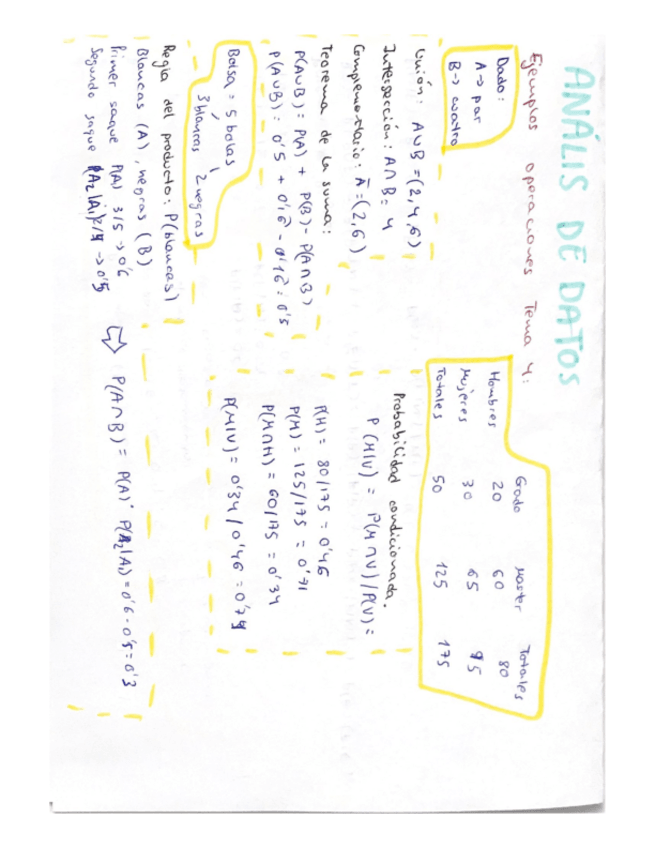 ANÁLIS DE DATOS
Ejemplos operaciones Tema 4:
Dado:
A → par
B → cuatro
Unión: A∪B = (2,4,6)
Intersección: A∩B = 4
Complementario: Ā = (2,6)
Teorema de la suma:
P(A∪B) = P(A) + P(B) - P(A∩B)
P(A∪B) = 0'5 + 0'16 - 0'16 = 0'5
Bolsa = 5 bolas
3 blancas 2 negras
Regla del producto: P(blancas)
Blancas (A), negras (B)
Primer saque P(A) 3/5 → 0'6
Segundo saque P(A₂|A₁) 2/4 → 0'5
⇨ P(A∩B) = P(A) · P(A₂|A₁) = 0'6 · 0'5 = 0'3
Grado Master Totales
Hombres 20 60 80
Mujeres 30 65 95
Totales 50 125 175
Probabilidad condicionada.
P(M|V) = P(M∩V) / P(V) =
P(H) = 80/175 = 0'46
P(M) = 125/175 = 0'71
P(M∩H) = 60/175 = 0'34
P(M|V) = 0'34 / 0'46 = 0'74